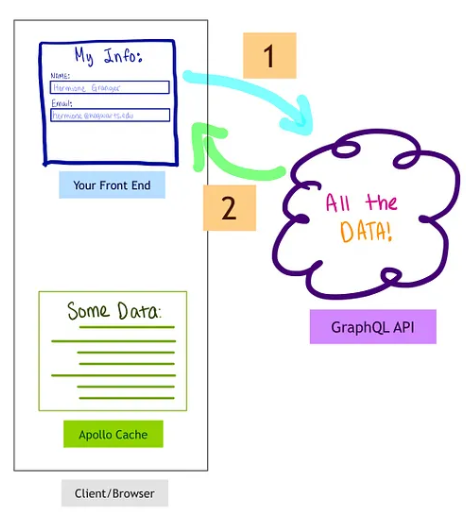 My Info:
NAME:
Hermione Granger
Email:
hermione@hogwarts.edu
Your Front End
1
2
All the
DATA!
GraphQL API
Some Data:
Apollo Cache
Client/Browser